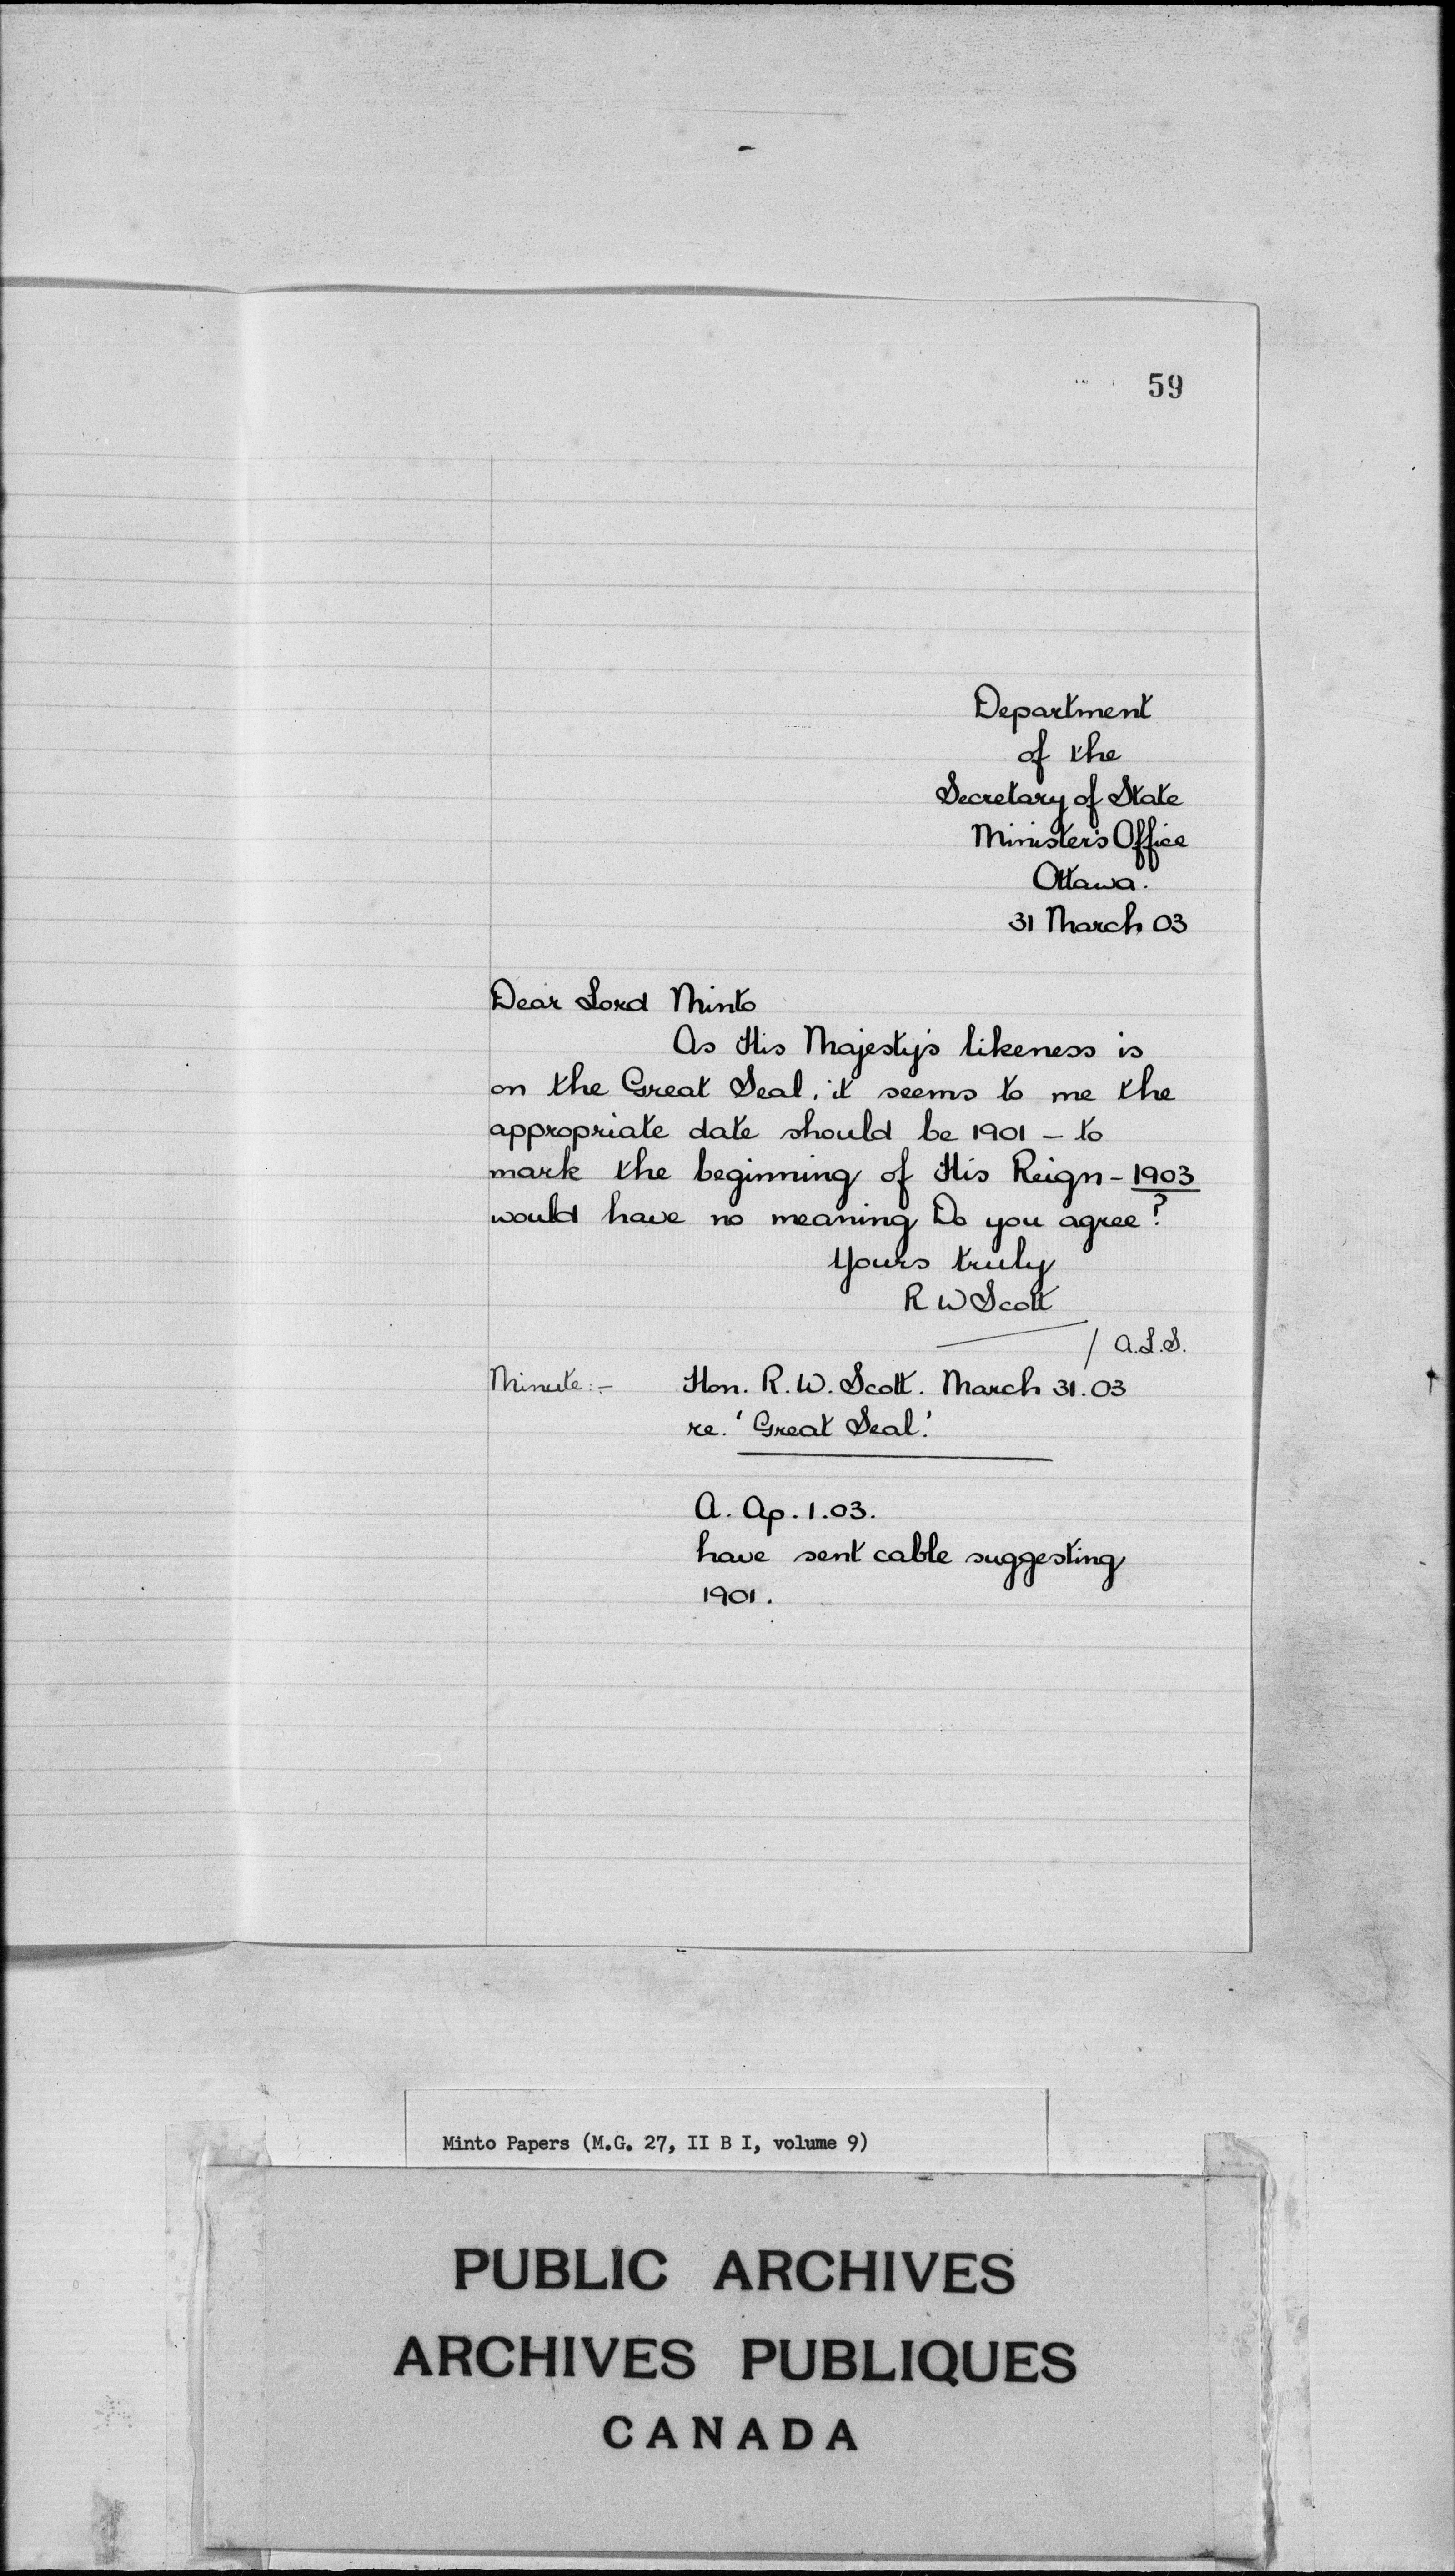 59
Department
of the
Secretary of State
Minister's Office
Ottawa.
31 March 03
Dear Lord Minto
As His Majesty's likeness is
on the Great Seal, it seems to me the
appropriate date should be 1901 – to
mark the beginning of His Reign – 1903
would have no meaning Do you agree?
Yours truly
R W Scott
/ A.L.S.
Minute:- Hon. R. W. Scott. March 31.03
re. 'Great Seal.'
A. Ap. 1.03.
have sent cable suggesting
1901.
Minto Papers (M.G. 27, II B I, volume 9)
PUBLIC ARCHIVES
ARCHIVES PUBLIQUES
CANADA